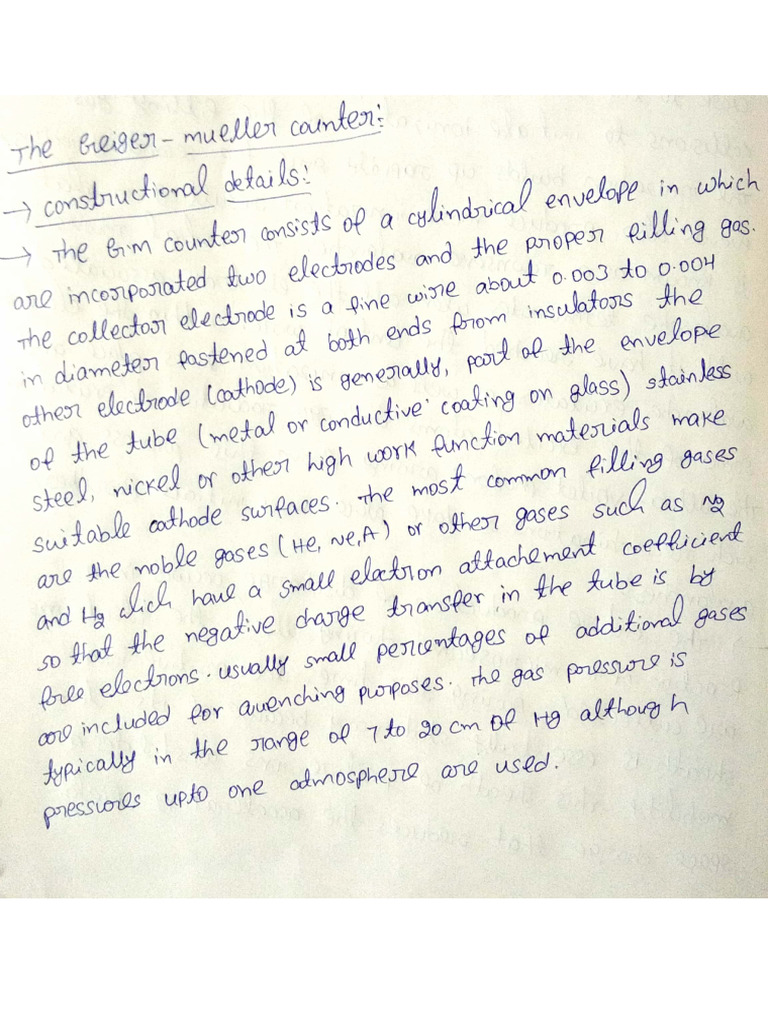 The Geiger-mueller counter:
→ constructional details:
→ The G.m counter consists of a cylindrical envelope in which
are incorporated two electrodes and the proper filling gas.
The collector electrode is a fine wire about 0.003 to 0.004
in diameter fastened at both ends from insulators the
other electrode (cathode) is generally, part of the envelope
of the tube (metal or conductive coating on glass) stainless
steel, nickel or other high work function materials make
suitable cathode surfaces. The most common filling gases
are the noble gases (He, Ne, A) or other gases such as N2
and H2 which have a small electron attachement coefficient
so that the negative charge transfer in the tube is by
free electrons. usually small percentages of additional gases
are included for quenching purposes. The gas pressure is
typically in the range of 7 to 20 cm of Hg although
pressures upto one atmosphere are used.